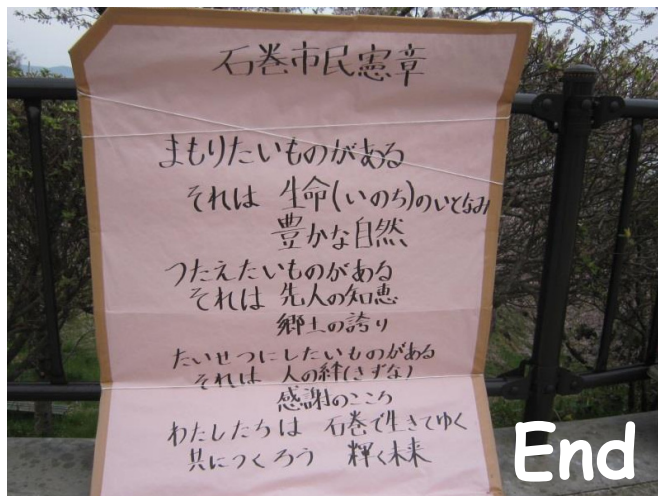 石巻市民憲章
まもりたいものがある
それは 生命(いのち)のいとなみ
豊かな自然
つたえたいものがある
それは 先人の知恵
郷土の誇り
たいせつにしたいものがある
それは 人の絆(きずな)
感謝のこころ
わたしたちは 石巻で生きてゆく
共につくろう 輝く未来
End